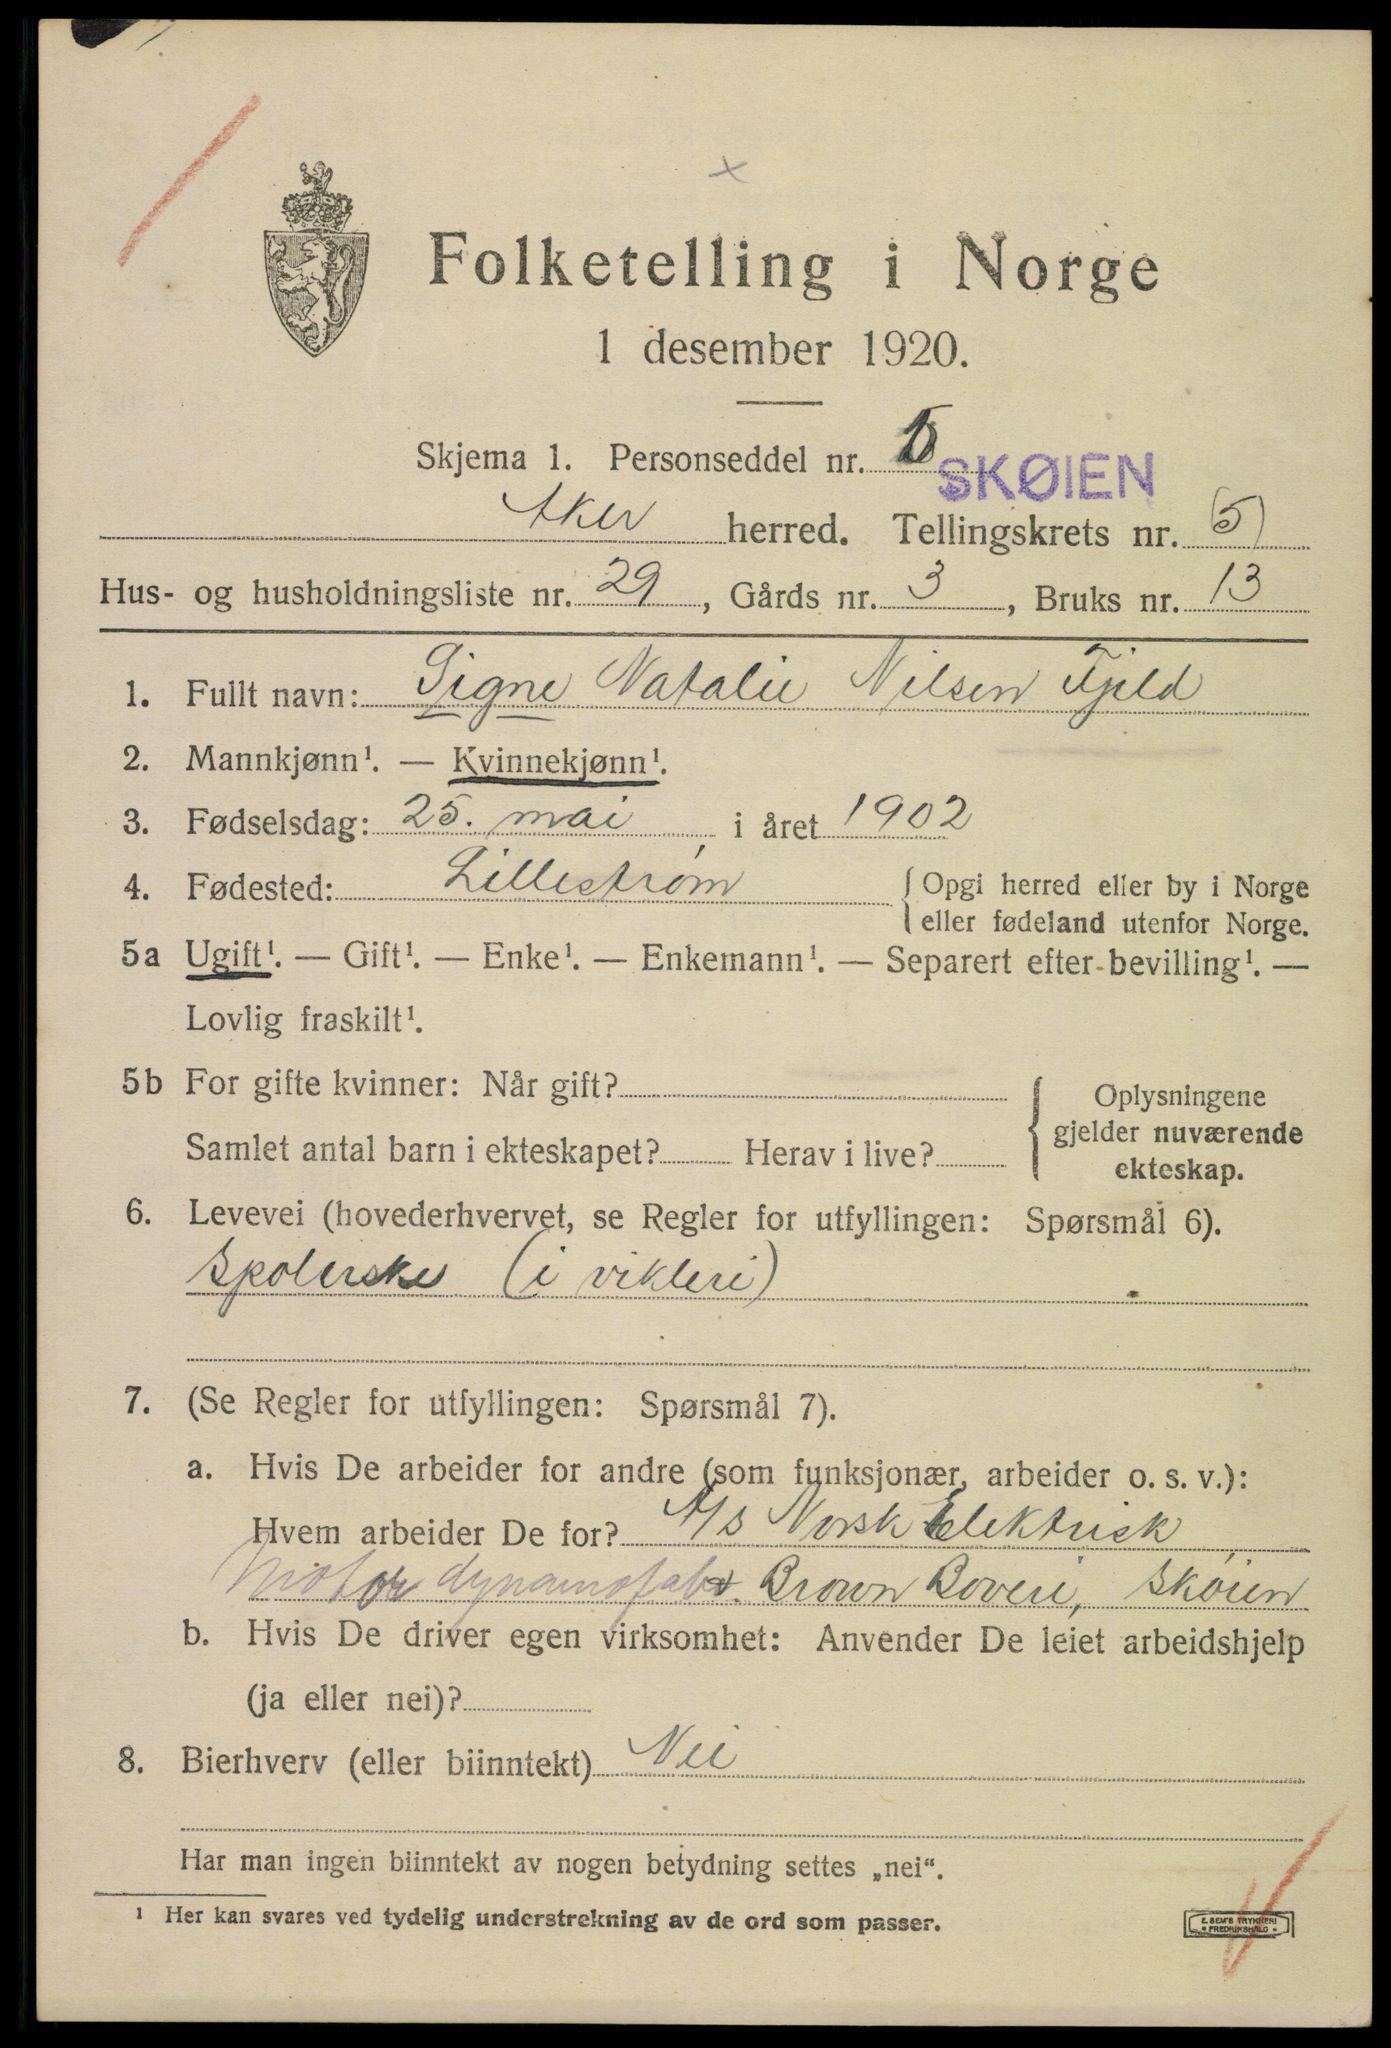 Folketelling i Norge
1 desember 1920.
Skjema 1. Personseddel nr.
SKØIEN
Aker herred. Tellingskrets nr. (5)
Hus- og husholdningsliste nr. 29, Gårds nr. 3, Bruks nr. 13
1. Fullt navn: Signe Natalie Nilsen Fjeld
2. Mannkjønn¹. — Kvinnekjønn¹.
3. Fødselsdag: 25. mai, i året 1902
4. Fødested: Lillestrøm {Opgi herred eller by i Norge
eller fødeland utenfor Norge.
5a Ugift¹. — Gift¹. — Enke¹. — Enkemann¹. — Separert efter bevilling¹. —
Lovlig fraskilt¹.
5b For gifte kvinner: Når gift?
Samlet antal barn i ekteskapet? Herav i live?
{ Oplysningene
gjelder nuværende
ekteskap.
6. Levevei (hovederhvervet, se Regler for utfyllingen: Spørsmål 6).
Spolerske (i vikleri)
7. (Se Regler for utfyllingen: Spørsmål 7).
a. Hvis De arbeider for andre (som funksjonær, arbeider o. s. v.):
Hvem arbeider De for? A/S Norsk Elektrisk
Motor dynamofabr. Brown Boveri, Skøien
b. Hvis De driver egen virksomhet: Anvender De leiet arbeidshjelp
(ja eller nei)?
8. Bierhverv (eller biinntekt) Nei
Har man ingen biinntekt av nogen betydning settes „nei“.
¹ Her kan svares ved tydelig understrekning av de ord som passer.
E. SEM'S TRYKKERI
* FREDRIKSHALD *